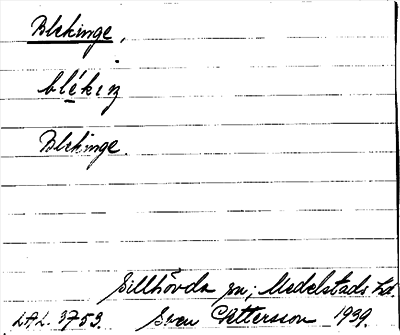 Blekinge,
blékiŋ
Blekinge.
Sillhövda sn; Medelstads hd.
LAL. 3753. Sven Pettersson 1939.